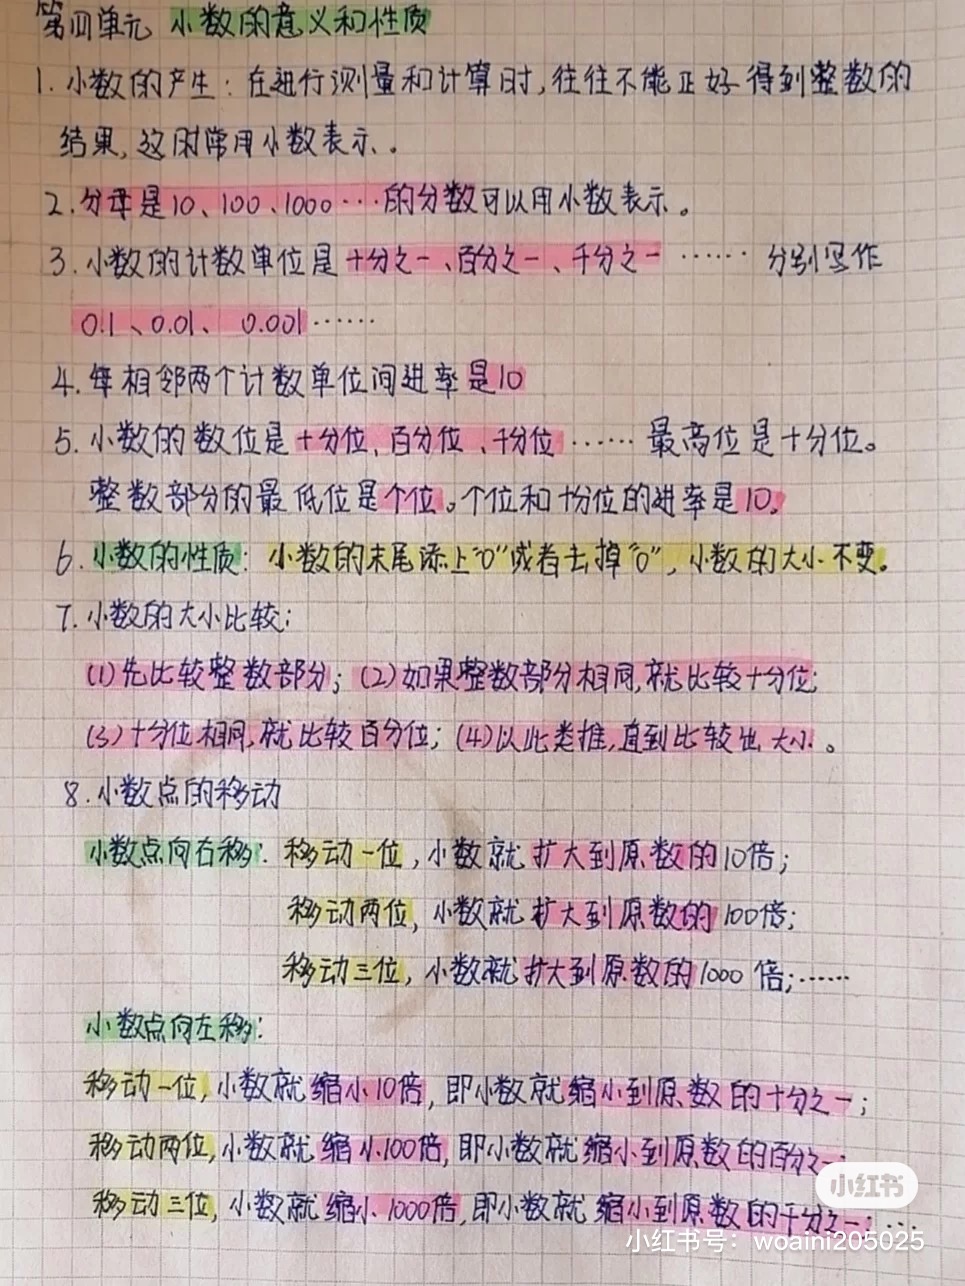 第四单元 小数的意义和性质
1. 小数的产生:在进行测量和计算时,往往不能正好得到整数的
结果,这时常用小数表示。
2. 分母是10、100、1000···的分数可以用小数表示。
3. 小数的计数单位是十分之一、百分之一、千分之一······ 分别写作
0.1、0.01、 0.001······
4. 每相邻两个计数单位间进率是10
5. 小数的数位是十分位、百分位、千分位······ 最高位是十分位。
整数部分的最低位是个位。个位和十分位的进率是10。
6. 小数的性质:小数的末尾添上“0”或者去掉“0”,小数的大小不变。
7. 小数的大小比较:
(1)先比较整数部分;(2)如果整数部分相同,就比较十分位;
(3)十分位相同,就比较百分位;(4)以此类推,直到比较出大小。
8. 小数点的移动
小数点向右移:移动一位,小数就扩大到原数的10倍;
移动两位,小数就扩大到原数的100倍;
移动三位,小数就扩大到原数的1000倍;······
小数点向左移:
移动一位,小数就缩小10倍,即小数就缩小到原数的十分之一;
移动两位,小数就缩小100倍,即小数就缩小到原数的百分之一;
移动三位,小数就缩小1000倍,即小数就缩小到原数的千分之一;···
小红书
小红书号:woaini205025